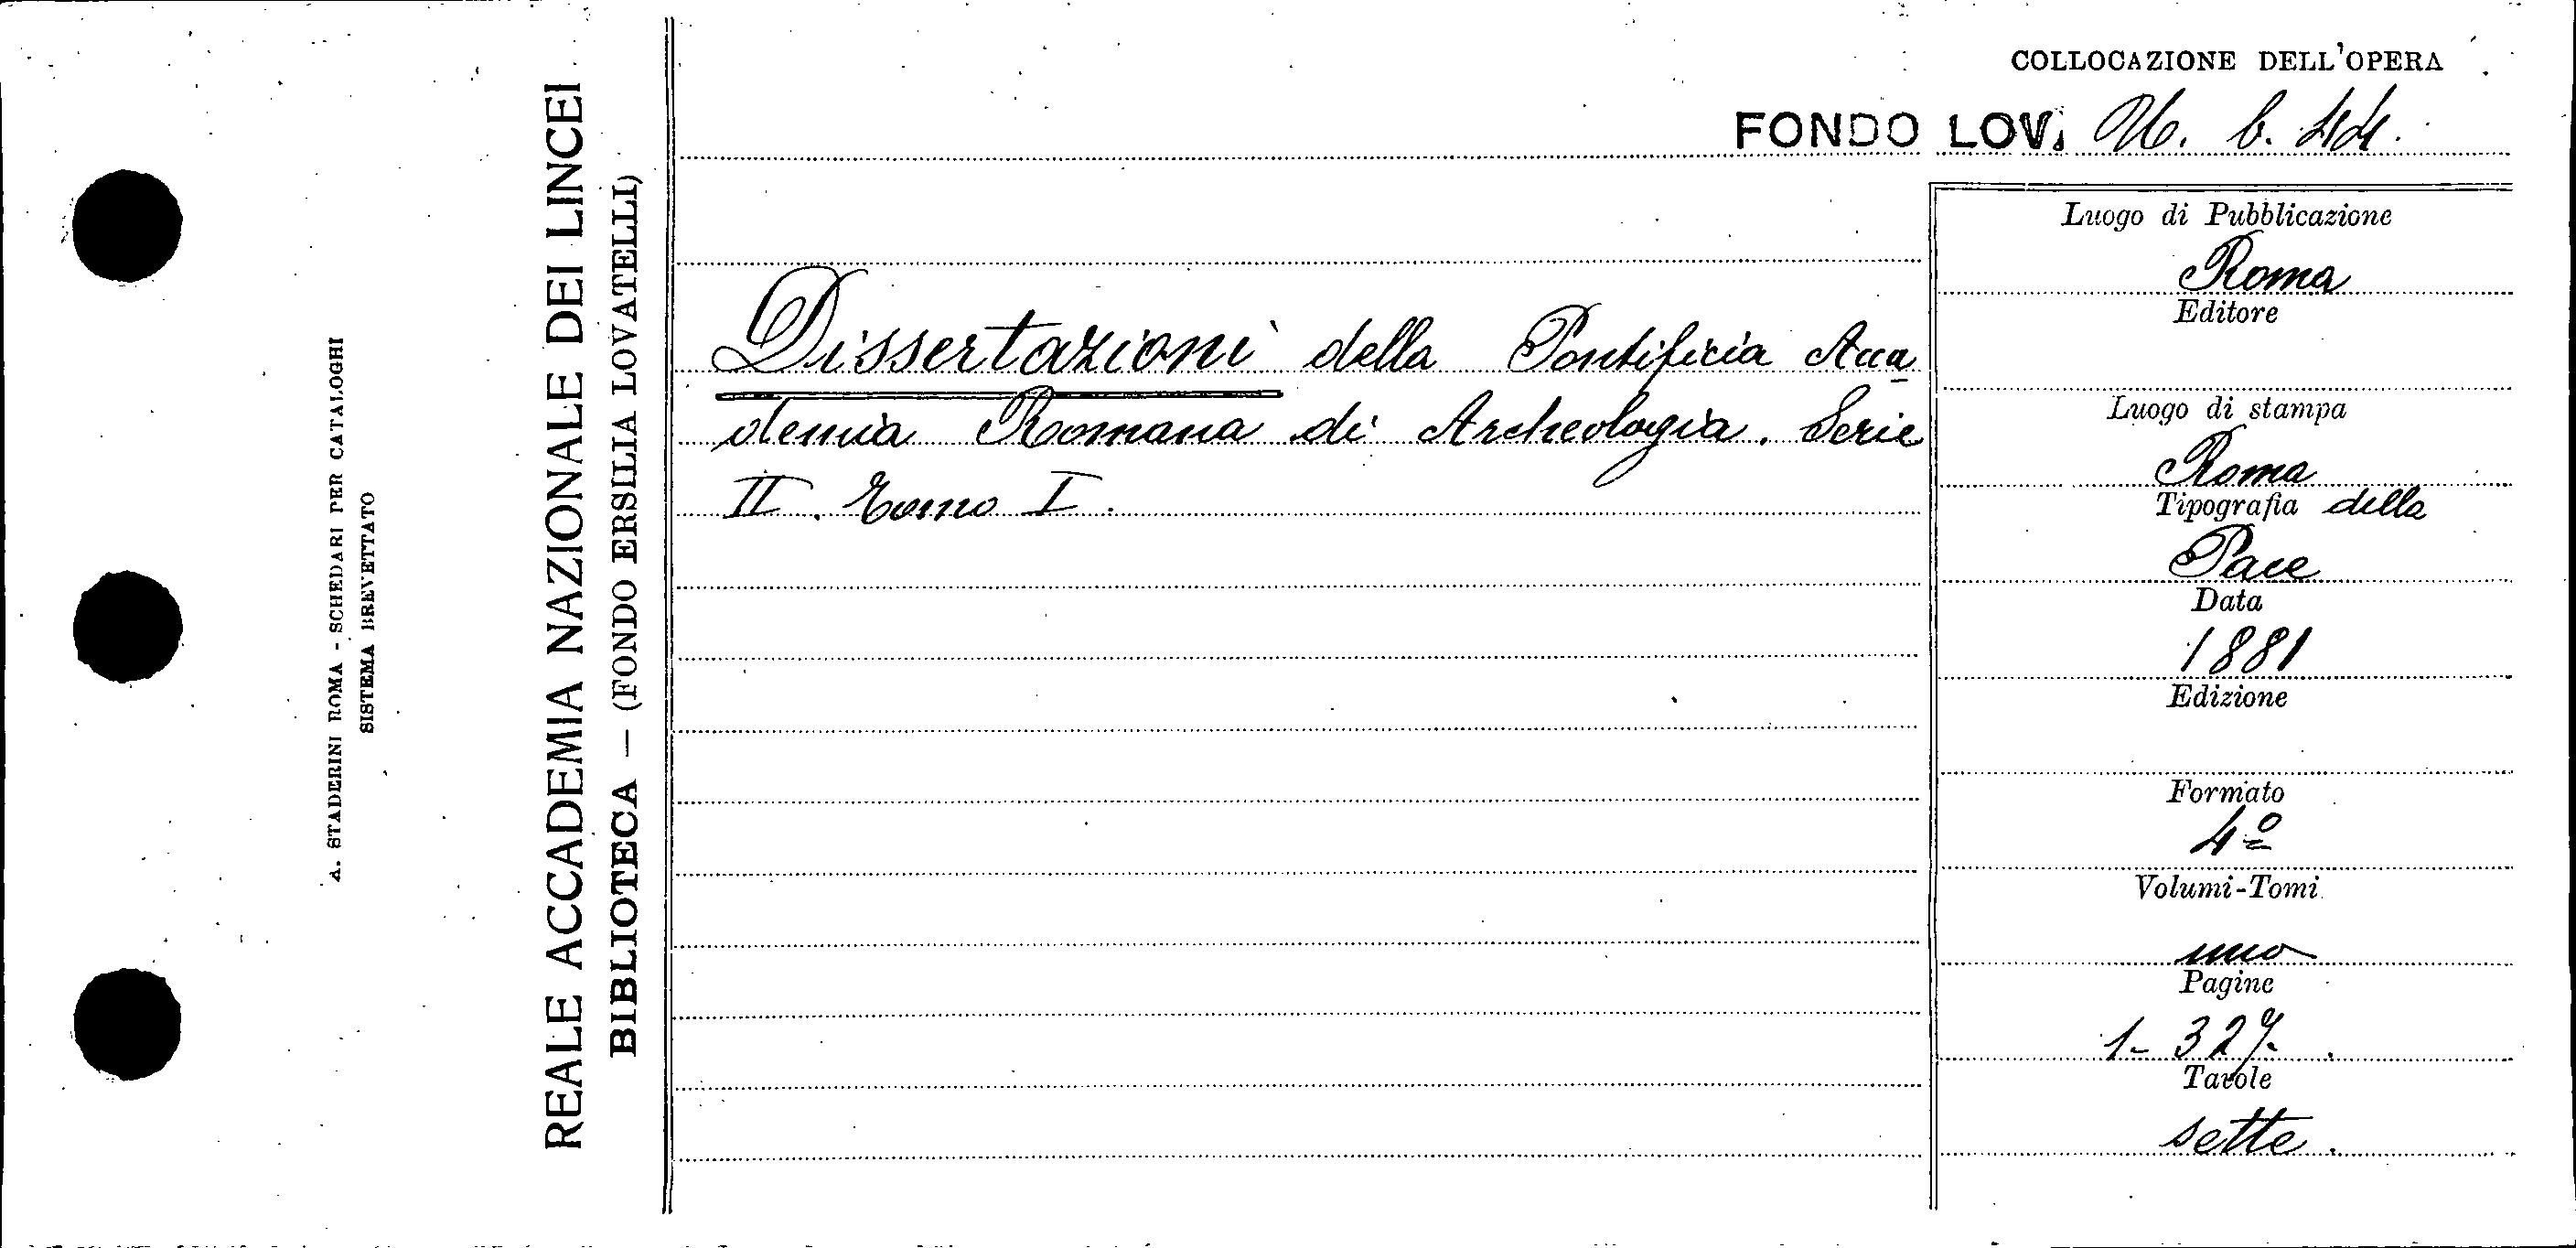 COLLOCAZIONE DELL'OPERA
FONDO LOV. b. 44.
REALE ACCADEMIA NAZIONALE DEI LINCEI
BIBLIOTECA — (FONDO ERSILIA LOVATELLI)
A. STADERINI ROMA - SCHEDARI PER CATALOGHI
SISTEMA BREVETTATO
Dissertazioni della Pontificia Acca
demia Romana di Archeologia. Serie
II. Tomo I.
Luogo di Pubblicazione
Roma
Editore
Luogo di stampa
Roma
Tipografia della
Pace
Data
1881
Edizione
Formato
4º
Volumi-Tomi
uno
Pagine
1-327.
Tavole
sette.